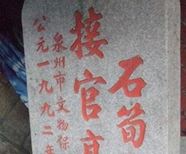 石筍
接官亭
泉州市文物保
公元一九九二年